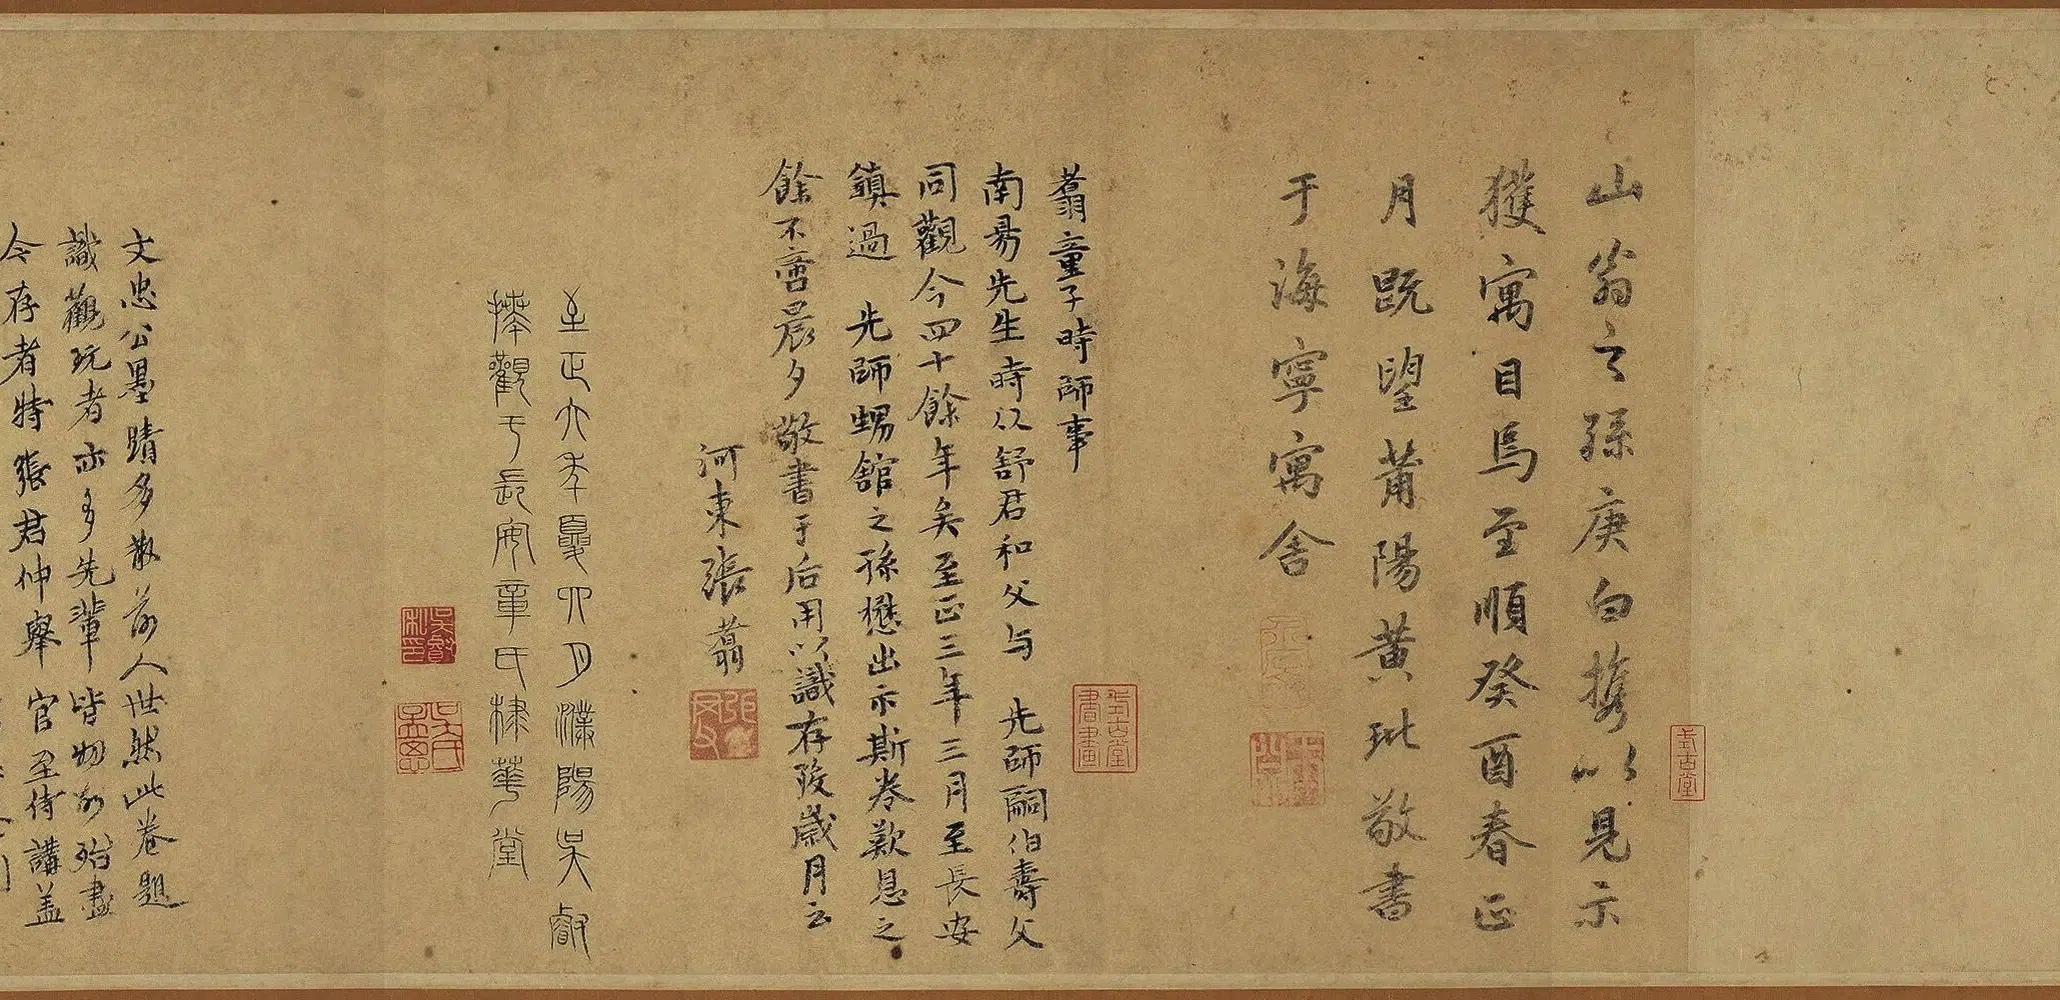 山翁之孫庚白携以見示
獲寓目焉至順癸酉春正
月既望莆陽黄玭敬書
于海寧寓舍
翥童子時師事
南昜先生時以舒君和父与 先師嗣伯壽父
同觀今四十餘年矣至正三年三月至長安
鎮過 先師甥舘之孫懋出示斯卷歎息之
餘不啻晨夕敬書于后用以識存歿歲月云
河東張翥
至正六年夏四月濮陽吴叡
捧觀于長安章氏棣華堂
文忠公墨蹟多散落人世然此卷題
識觀玩者亦多先輩皆物故殆盡
今存者特張君仲舉 官至侍講盖
式古堂
式古堂書畫